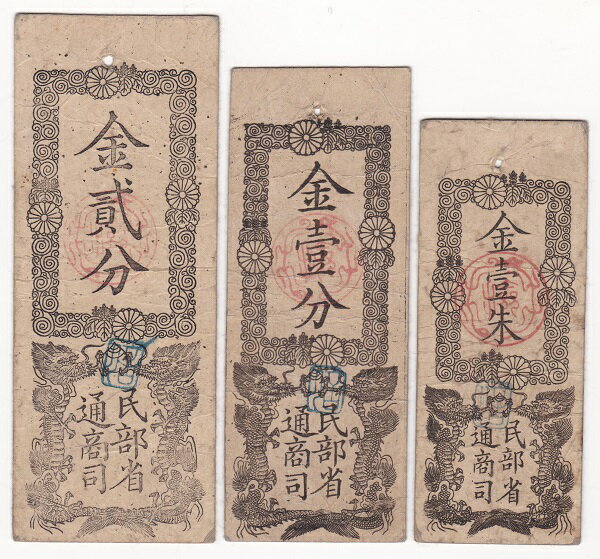 金貳分
民部省
通商司
金壹分
民部省
通商司
金壹朱
民部省
通商司